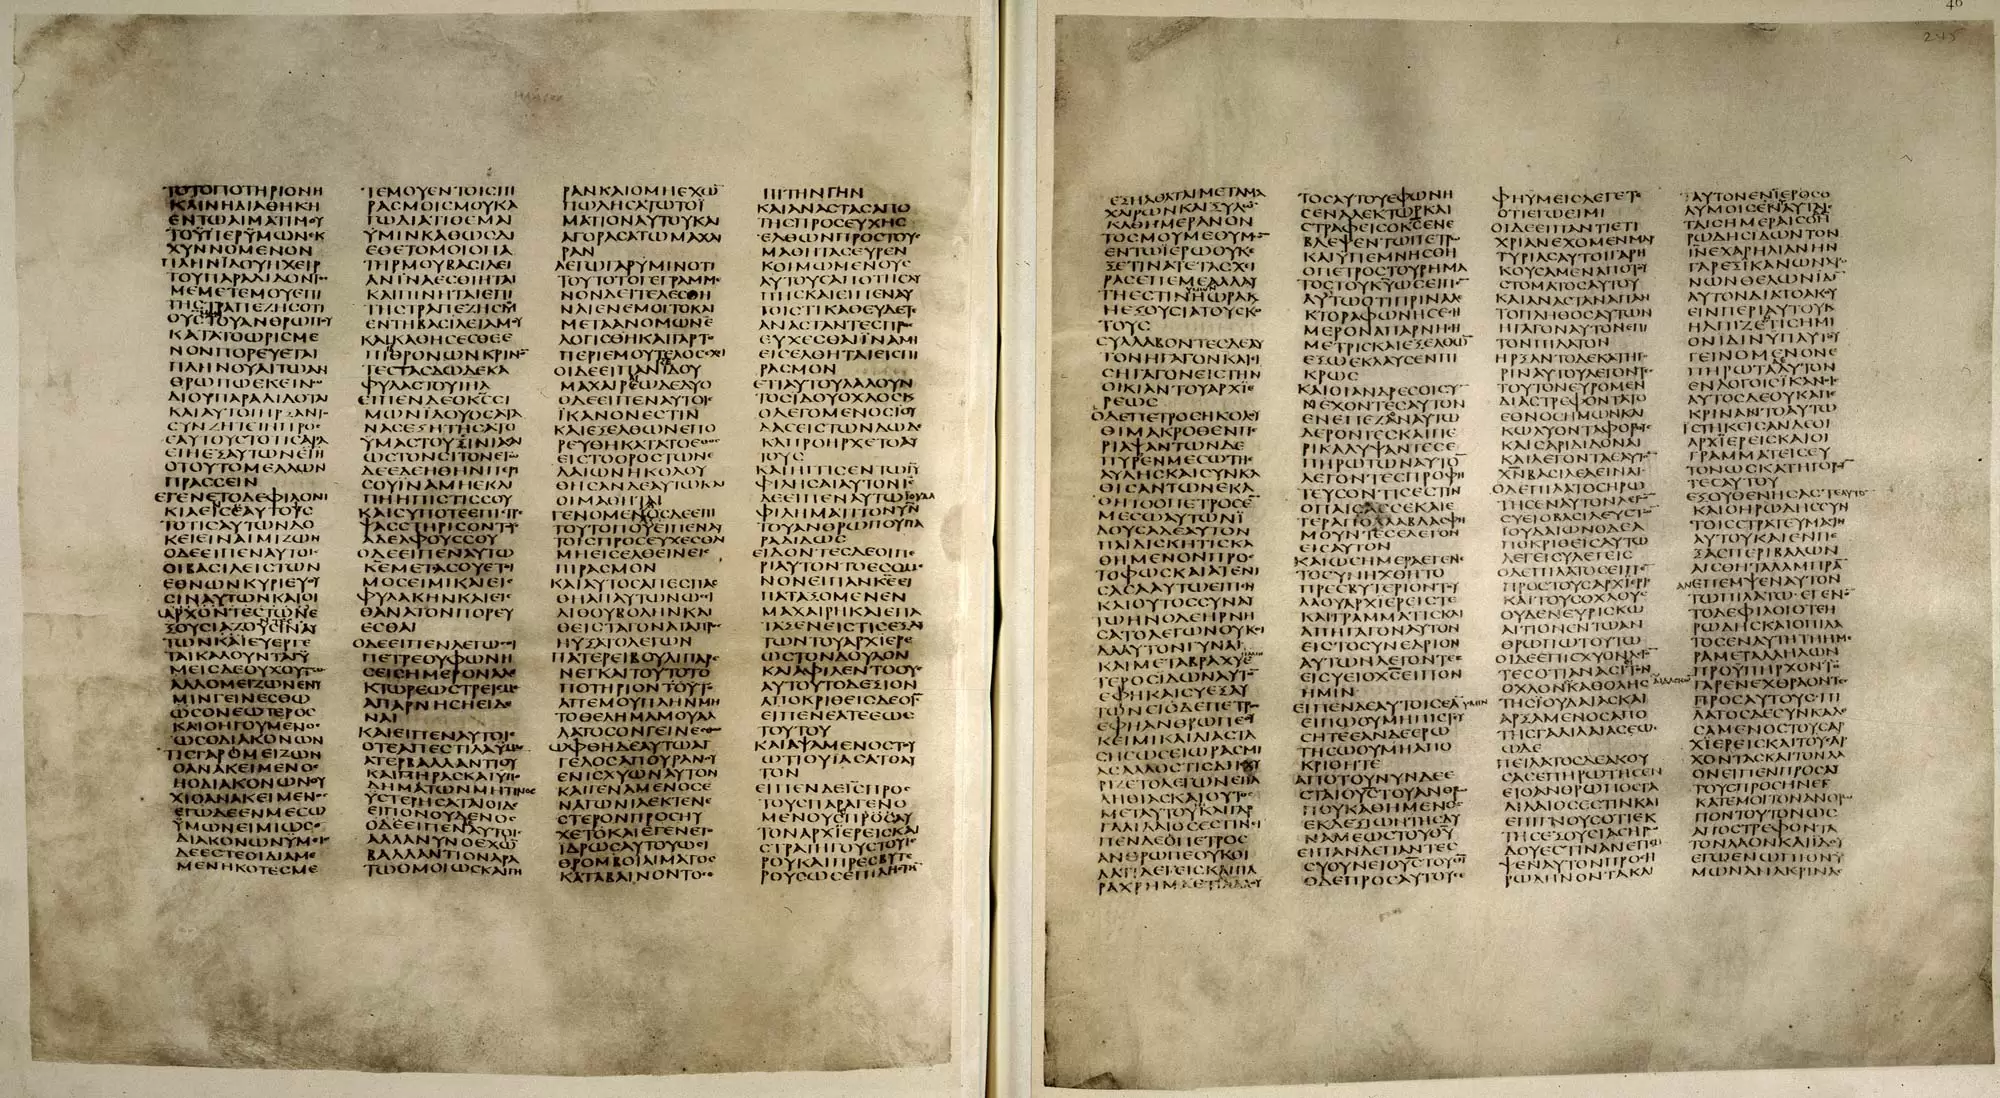 ΤΟΤΟΠΟΤΗΡΙΟΝΗ
ΚΑΙΝΗΔΙΑΘΗΚΗ
ΕΝΤΩΑΙΜΑΤΙΜΟΥ
ΤΟΫΠΕΡΫΜΩΝΕΚ
ΧΥΝΝΟΜΕΝΟΝ
ΠΛΗΝΪΔΟΥΗΧΕΙΡ
ΤΟΥΠΑΡΑΔΙΔΟΝΤΟϹ
ΜΕΜΕΤΕΜΟΥΕΠΙ
ΤΗϹΤΡΑΠΕΖΗϹΟΤΙ
ΚΑΤΑΤΟΩΡΙϹΜΕ
ΝΟΝΠΟΡΕΥΕΤΑΙ
ΠΛΗΝΟΥΑΙΤΩΑΝ
ΘΡΩΠΩΕΚΕΙΝΩ
ΔΙΟΥΠΑΡΑΔΙΔΟΤΑΙ
ΚΑΙΑΥΤΟΙΗΡΞΑΝΤΟ
ΣΥΝΖΗΤΕΙΝΠΡΟϹ
ΕΑΥΤΟΥϹΤΟΤΙϹΑΡΑ
ΕΙΗΕΞΑΥΤΩΝΕΙΗ
ΟΤΟΥΤΟΜΕΛΛΩΝ
ΠΡΑϹϹΕΙΝ
ΕΓΕΝΕΤΟΔΕΦΙΛΟΝΙ
ΚΙΑΕΙϹΕΑΥΤΟΥϹ
ΤΟΤΙϹΑΥΤΩΝΔΟ
ΚΕΙΕΙΝΑΙΜΙΖΩΝ
ΟΔΕΕΙΠΕΝΑΥΤΟΙϹ
ΟΙΒΑϹΙΛΕΙϹΤΩΝ
ΕΘΝΩΝΚΥΡΙΕΥΟΥ
ϹΙΝΑΥΤΩΝΚΑΙΟΙ
ΤΩΝΚΑΙΕΥΕΡΓΕ
ΤΑΙΚΑΛΟΥΝΤΑΙΫ
ΜΕΙϹΔΕΟΥΧΟΥΤΩϹ
ΑΛΛΟΜΕΙΖΩΝΕΝΫ
ΜΙΝΓΕΙΝΕϹΘΩ
ΩϹΟΝΕΩΤΕΡΟϹ
ΚΑΙΟΗΓΟΥΜΕΝΟϹ
ΩϹΟΔΙΑΚΟΝΩΝ
ΤΙϹΓΑΡΟΜΕΙΖΩΝ
ΟΑΝΑΚΕΙΜΕΝΟϹ
ΗΟΔΙΑΚΟΝΩΝΟΥ
ΧΙΟΑΝΑΚΕΙΜΕΝΟϹ
ΕΓΩΔΕΕΝΜΕϹΩ
ΫΜΩΝΕΙΜΙΩϹΟ
ΔΙΑΚΟΝΩΝΫΜΕΙϹ
ΔΕΕϹΤΕΟΙΔΙΑΜΕ
ΜΕΝΗΚΟΤΕϹΜΕ
ΤΕΜΟΥΕΝΤΟΙϹΠΙ
ΡΑϹΜΟΙϹΜΟΥΚΑ
ΓΩΔΙΑΤΙΘΕΜΑΙ
ΫΜΙΝΚΑΘΩϹΔΙ
ΕΘΕΤΟΜΟΙΟΠΑ
ΤΗΡΜΟΥΒΑϹΙΛΕΙ
ΑΝΪΝΑΕϹΘΗΤΑΙ
ΚΑΙΠΙΝΗΤΑΙΕΠΙ
ΤΗϹΤΡΑΠΕΖΗϹΜΟΥ
ΕΝΤΗΒΑϹΙΛΕΙΑΜΟΥ
ΚΑΙΚΑΘΗϹΕϹΘΕΕ
ΠΙΘΡΟΝΩΝΚΡΙΝΟ
ΤΕϹΤΑϹΔΩΔΕΚΑ
ΦΥΛΑϹΤΟΥΙΗΛ
ΕΙΠΕΝΔΕΟΚϹϹΙ
ΜΩΝΪΔΟΥΟϹΑΤΑ
ΝΑϹΕΞΗΤΗϹΑΤΟ
ΫΜΑϹΤΟΥϹΙΝΙΑϹΑΙ
ΩϹΤΟΝϹΙΤΟΝΕΓΩ
ΔΕΕΔΕΗΘΗΝΠΕΡΙ
ϹΟΥΪΝΑΜΗΕΚΛΙ
ΠΗΗΠΙϹΤΙϹϹΟΥ
ΚΑΙϹΥΠΟΤΕΕΠΙΣΤΡΕ
ΨΑϹϹΤΗΡΙϹΟΝΤΟΥϹ
ΑΔΕΛΦΟΥϹϹΟΥ
ΟΔΕΕΙΠΕΝΑΥΤΩ
ΚΕΜΕΤΑϹΟΥΕΤΟΙ
ΜΟϹΕΙΜΙΚΑΙΕΙϹ
ΦΥΛΑΚΗΝΚΑΙΕΙϹ
ΘΑΝΑΤΟΝΠΟΡΕΥ
ΕϹΘΑΙ
ΟΔΕΕΙΠΕΝΛΕΓΩϹΟΙ
ΠΕΤΡΕΟΥΦΩΝΗ
ϹΕΙϹΗΜΕΡΟΝΑΛΕ
ΚΤΩΡΕΩϹΤΡΕΙϹΜΕ
ΑΠΑΡΝΗϹΗΕΙΔΕ
ΝΑΙ
ΚΑΙΕΙΠΕΝΑΥΤΟΙϹ
ΟΤΕΑΠΕϹΤΙΛΑΫΜΑϹ
ΑΤΕΡΒΑΛΛΑΝΤΙΟΥ
ΚΑΙΠΗΡΑϹΚΑΙΥΠΟ
ΔΗΜΑΤΩΝΜΗΤΙΝΟϹ
ΫϹΤΕΡΗϹΑΤΑΙΟΙΔΕ
ΕΙΠΟΝΟΥΔΕΝΟϹ
ΟΔΕΕΙΠΕΝΑΥΤΟΙϹ
ΑΛΛΑΝΥΝΟΕΧΩ
ΒΑΛΛΑΝΤΙΟΝΑΡΑ
ΤΩΟΜΟΙΩϹΚΑΙΠΗ
ΡΑΝΚΑΙΟΜΗΕΧΩ
ΠΩΛΗϹΑΤΩΤΟΪ
ΜΑΤΙΟΝΑΥΤΟΥΚΑΙ
ΑΓΟΡΑϹΑΤΩΜΑΧΑΙ
ΡΑΝ
ΛΕΓΩΓΑΡΫΜΙΝΟΤΙ
ΤΟΥΤΟΤΟΓΕΓΡΑΜΜΕ
ΝΟΝΔΕΙΤΕΛΕϹΘΗ
ΝΑΙΕΝΕΜΟΙΤΟΚΑΙ
ΜΕΤΑΑΝΟΜΩΝΕ
ΛΟΓΙϹΘΗΚΑΙΓΑΡΤΟ
ΠΕΡΙΕΜΟΥΤΕΛΟϹΕΧΙ
ΟΙΔΕΕΙΠΑΝΪΔΟΥ
ΜΑΧΑΙΡΕΩΔΕΔΥΟ
ΟΔΕΕΙΠΕΝΑΥΤΟΙϹ
ΪΚΑΝΟΝΕϹΤΙΝ
ΚΑΙΕΞΕΛΘΩΝΕΠΟ
ΡΕΥΘΗΚΑΤΑΤΟΕΘΟϹ
ΕΙϹΤΟΟΡΟϹΤΩΝΕ
ΛΑΙΩΝΗΚΟΛΟΥ
ΘΗϹΑΝΔΕΑΥΤΩΚΑΙ
ΟΙΜΑΘΗΤΑΙ
ΓΕΝΟΜΕΝΟϹΔΕΕΠΙ
ΤΟΥΤΟΠΟΥΕΙΠΕΝΑΥ
ΤΟΙϹΠΡΟϹΕΥΧΕϹΘΑΙ
ΜΗΕΙϹΕΛΘΕΙΝΕΙϹ
ΠΙΡΑϹΜΟΝ
ΚΑΙΑΥΤΟϹΑΠΕϹΠΑϹ
ΘΗΑΠΑΥΤΩΝΩϹΙ
ΛΙΘΟΥΒΟΛΗΝΚΑΙ
ΘΕΙϹΤΑΓΟΝΑΤΑΠΡΟϹ
ΗΥΞΑΤΟΛΕΓΩΝ
ΠΑΤΕΡΕΙΒΟΥΛΙΠΑΡΕ
ΝΕΓΚΑΙΤΟΥΤΟΤΟ
ΠΟΤΗΡΙΟΝΤΟΥΤ
ΑΠΕΜΟΥΠΛΗΝΜΗ
ΤΟΘΕΛΗΜΑΜΟΥΑΛ
ΛΑΤΟϹΟΝΓΕΙΝΕϹΘΩ
ΩΦΘΗΔΕΑΥΤΩΑΓ
ΓΕΛΟϹΑΠΟΥΡΑΝΟΥ
ΕΝΙϹΧΥΩΝΑΥΤΟΝ
ΚΑΙΓΕΝΑΜΕΝΟϹΕ
ΝΑΓΩΝΙΑΕΚΤΕΝΕ
ϹΤΕΡΟΝΠΡΟϹΗΥ
ΧΕΤΟΚΑΙΕΓΕΝΕΤΟ
ΪΔΡΩϹΑΥΤΟΥΩϹΕΙ
ΘΡΟΜΒΟΙΑΙΜΑΤΟϹ
ΚΑΤΑΒΑΙΝΟΝΤΟϹ
ΠΙΤΗΝΓΗΝ
ΚΑΙΑΝΑϹΤΑϹΑΠΟ
ΤΗϹΠΡΟϹΕΥΧΗϹ
ΕΛΘΩΝΠΡΟϹΤΟΥϹ
ΜΑΘΗΤΑϹΕΥΡΕΝ
ΚΟΙΜΩΜΕΝΟΥϹ
ΑΥΤΟΥϹΑΠΟΤΗϹΛΥ
ΠΗϹΚΑΙΕΙΠΕΝΑΥ
ΤΟΙϹΤΙΚΑΘΕΥΔΕΤΕ
ΑΝΑϹΤΑΝΤΕϹΠΡΟϹ
ΕΥΧΕϹΘΑΙΪΝΑΜΙ
ΕΙϹΕΛΘΗΤΑΙΕΙϹΠΙ
ΡΑϹΜΟΝ
ΕΤΙΑΥΤΟΥΛΑΛΟΥΝ
ΤΟϹΪΔΟΥΟΧΛΟϹΚ
ΟΛΕΓΟΜΕΝΟϹΙΟΥ
ΔΑϹΕΙϹΤΩΝΔΩΔΕ
ΚΑΠΡΟΗΡΧΕΤΟΑΥ
ΤΟΥϹ
ΚΑΙΗΓΓΙϹΕΝΤΩΙΥ
ΦΙΛΗϹΑΙΑΥΤΟΝΙϹ
ΔΕΕΙΠΕΝΑΥΤΩΪΟΥΔΑ
ΦΙΛΗΜΑΤΙΤΟΝΥΝ
ΤΟΥΑΝΘΡΩΠΟΥΠΑ
ΡΑΔΙΔΩϹ
ΕΙΔΟΝΤΕϹΔΕΟΙΠΕ
ΡΙΑΥΤΟΝΤΟΕϹΟΜΕ
ΝΟΝΕΙΠΑΝΚΕΕΙ
ΠΑΤΑΞΟΜΕΝΕΝ
ΜΑΧΑΙΡΗΚΑΙΕΠΑ
ΤΑΞΕΝΕΙϹΤΙϹΕΞΑΥ
ΤΩΝΤΟΥΑΡΧΙΕΡΕ
ΩϹΤΟΝΔΟΥΛΟΝ
ΚΑΙΑΦΙΛΕΝΤΟΟΥϹ
ΑΥΤΟΥΤΟΔΕΞΙΟΝ
ΑΠΟΚΡΙΘΕΙϹΔΕΟΙϹ
ΕΙΠΕΝΕΑΤΕΕΩϹ
ΤΟΥΤΟΥ
ΚΑΙΑΨΑΜΕΝΟϹΤΟΥ
ΩΤΙΟΥΙΑϹΑΤΟΑΥ
ΤΟΝ
ΕΙΠΕΝΔΕΙϹΠΡΟϹ
ΤΟΥϹΠΑΡΑΓΕΝΟ
ΜΕΝΟΥϹΠΡΟϹΑΥ
ΤΟΝΑΡΧΪΕΡΕΙϹΚΑΙ
ϹΤΡΑΤΗΓΟΥϹΤΟΥΪΕ
ΡΟΥΚΑΙΠΡΕϹΒΥΤΕ
ΡΟΥϹΩϹΕΠΙΛΗϹΤΗ
ΕΞΗΛΘΑΤΑΙΜΕΤΑΜΑ
ΧΑΙΡΩΝΚΑΙΞΥΛΩΝ
ΚΑΘΗΜΕΡΑΝΟΝ
ΤΟϹΜΟΥΜΕΘΥΜΩ
ΕΝΤΩΪΕΡΩΟΥΚΕ
ΞΕΤΙΝΑΤΕΤΑϹΧΙ
ΡΑϹΕΠΕΜΕΑΛΛΑΥ
ΤΗΕϹΤΙΝΗΩΡΑΚ
ΗΕΞΟΥϹΙΑΤΟΥϹΚΟ
ΤΟΥϹ
ϹΥΛΛΑΒΟΝΤΕϹΔΕΑΥ
ΤΟΝΗΓΑΓΟΝΚΑΙΕΙ
ϹΗΓΑΓΟΝΕΙϹΤΗΝ
ΟΙΚΙΑΝΤΟΥΑΡΧΪΕ
ΡΕΩϹ
ΟΔΕΠΕΤΡΟϹΗΚΟΛΟΥ
ΘΙΜΑΚΡΟΘΕΝΠΕ
ΡΙΑΨΑΝΤΩΝΔΕ
ΠΥΡΕΝΜΕϹΩΤΗϹ
ΑΥΛΗϹΚΑΙϹΥΝΚΑ
ΘΙϹΑΝΤΩΝΕΚΑ
ΘΗΤΟΟΠΕΤΡΟϹΕ
ΜΕϹΩΑΥΤΩΝΪ
ΔΟΥϹΑΔΕΑΥΤΟΝ
ΠΑΙΔΙϹΚΗΤΙϹΚΑ
ΘΗΜΕΝΟΝΠΡΟϹ
ΤΟΦΩϹΚΑΙΑΤΕΝΙ
ϹΑϹΑΑΥΤΩΕΙΠΕΝ
ΚΑΙΟΥΤΟϹϹΥΝΑΥ
ΤΩΗΝΟΔΕΗΡΝΗ
ϹΑΤΟΛΕΓΩΝΟΥΚΟΙ
ΔΑΑΥΤΟΝΓΥΝΑΙ
ΚΑΙΜΕΤΑΒΡΑΧΥΕ
ΤΕΡΟϹΙΔΩΝΑΥΤΟΝ
ΕΦΗΚΑΙϹΥΕΞΑΥ
ΤΩΝΕΙΟΔΕΠΕΤΡΟϹ
ΕΦΗΑΝΘΡΩΠΕΟΥ
ΚΕΙΜΙΚΑΙΔΙΑϹΤΑ
ϹΗϹΩϹΕΙΩΡΑϹΜΙ
ΑϹΑΛΛΟϹΤΙϹΔΙΪϹΧΥ
ΡΙΖΕΤΟΛΕΓΩΝΕΠΑ
ΛΗΘΙΑϹΚΑΙΟΥΤΟϹ
ΜΕΤΑΥΤΟΥΚΑΙΓΑΡ
ΓΑΛΙΛΑΙΟϹΕϹΤΙΝΕΙ
ΠΕΝΔΕΟΠΕΤΡΟϹ
ΑΝΘΡΩΠΕΟΥΚΟΙ
ΔΑΤΙΛΕΓΕΙϹΚΑΙΠΑ
ΡΑΧΡΗΜΑΕΤΙΛΑΛΟΥ
ΤΟϹΑΥΤΟΥΕΦΩΝΗ
ϹΕΝΑΛΕΚΤΩΡΚΑΙ
ϹΤΡΑΦΕΙϹΟΚϹΕΝΕ
ΒΛΕΨΕΝΤΩΠΕΤΡΩ
ΚΑΙΫΠΕΜΝΗϹΘΗ
ΟΠΕΤΡΟϹΤΟΥΡΗΜΑ
ΤΟϹΤΟΥΚΥΩϹΕΙΠΕ
ΑΥΤΩΟΤΙΠΡΙΝΑΛΕ
ΚΤΟΡΑΦΩΝΗϹΕϹΗ
ΜΕΡΟΝΑΠΑΡΝΗϹΗ
ΜΕΤΡΙϹΚΑΙΕΞΕΛΘΩ
ΕΞΩΕΚΛΑΥϹΕΝΠΙ
ΚΡΩϹ
ΚΑΙΟΙΑΝΔΡΕϹΟΙϹΥ
ΝΕΧΟΝΤΕϹΑΥΤΟΝ
ΕΝΕΠΕΖΑΝΑΥΤΩ
ΔΕΡΟΝΤΕϹΚΑΙΠΕ
ΡΙΚΑΛΥΨΑΝΤΕϹΕ
ΠΗΡΩΤΩΝΑΥΤΟ
ΛΕΓΟΝΤΕϹΠΡΟΦΗ
ΤΕΥϹΟΝΤΙϹΕϹΤΙΝ
ΟΠΑΙϹΑϹϹΕΚΑΙΕ
ΤΕΡΑΠΟΛΛΑΒΛΑϹΦΗ
ΜΟΥΝΤΕϹΕΛΕΓΟΝ
ΕΙϹΑΥΤΟΝ
ΚΑΙΩϹΗΜΕΡΑΕΓΕΝΕ
ΤΟϹΥΝΗΧΘΗΤΟ
ΠΡΕϹΒΥΤΕΡΙΟΝΤΟΥ
ΛΑΟΥΑΡΧΙΕΡΕΙϹΤΕ
ΚΑΙΓΡΑΜΜΑΤΙϹΚΑΙ
ΑΠΗΓΑΓΟΝΑΥΤΟΝ
ΕΙϹΤΟϹΥΝΕΔΡΙΟΝ
ΑΥΤΩΝΛΕΓΟΝΤΕϹ
ΕΙϹΥΕΙΟΧϹΕΙΠΟΝ
ΗΜΙΝ
ΕΙΠΕΝΔΕΑΥΤΟΙϹΕΑΫΜΙΝ
ΕΙΠΩΟΥΜΗΠΙϹΤΕΥ
ϹΗΤΕΕΑΝΔΕΕΡΩ
ΤΗϹΩΟΥΜΗΑΠΟ
ΚΡΙΘΗΤΕ
ΑΠΟΤΟΥΝΥΝΔΕΕ
ϹΤΑΙΟΥϹΤΟΥΑΝΘΡΩ
ΠΟΥΚΑΘΗΜΕΝΟϹ
ΕΚΔΕΞΙΩΝΤΗϹΔΥ
ΝΑΜΕΩϹΤΟΥΘΥ
ΕΙΠΑΝΔΕΠΑΝΤΕϹ
ϹΥΟΥΝΕΙΟΥϹΤΟΥΘΥ
ΟΔΕΠΡΟϹΑΥΤΟΥϹΕ
ΦΗΫΜΕΙϹΛΕΓΕΤΕ
ΟΤΙΕΓΩΕΙΜΙ
ΟΙΔΕΕΙΠΑΝΤΙΕΤΙ
ΧΡΙΑΝΕΧΟΜΕΝΜΑΡ
ΤΥΡΙΑϹΑΥΤΟΙΓΑΡΗ
ΚΟΥϹΑΜΕΝΑΠΟΤΟΥ
ϹΤΟΜΑΤΟϹΑΥΤΟΥ
ΚΑΙΑΝΑϹΤΑΝΑΠΑΝ
ΤΟΠΛΗΘΟϹΑΥΤΩΝ
ΗΓΑΓΟΝΑΥΤΟΝΕΠΙ
ΤΟΝΠΙΛΑΤΟΝ
ΗΡΞΑΝΤΟΔΕΚΑΤΗΓΟ
ΡΙΝΑΥΤΟΥΛΕΓΟΝΤΕϹ
ΤΟΥΤΟΝΕΥΡΟΜΕΝ
ΔΙΑϹΤΡΕΦΟΝΤΑΤΟ
ΕΘΝΟϹΗΜΩΝΚΑΙ
ΚΩΛΥΟΝΤΑΦΟΡΟΥϹ
ΚΑΙϹΑΡΙΔΙΔΟΝΑΙ
ΚΑΙΛΕΓΟΝΤΑΕΑΥΤΟ
ΧΝΒΑϹΙΛΕΑΕΙΝΑΙ
ΟΔΕΠΙΛΑΤΟϹΗΡΩ
ΤΗϹΕΝΑΥΤΟΝΛΕΓΩ
ϹΥΕΙΟΒΑϹΙΛΕΥϹΤΩ
ΪΟΥΔΑΙΩΝΟΔΕΑ
ΠΟΚΡΙΘΕΙϹΑΥΤΩ
ΛΕΓΕΙϹΥΛΕΓΕΙϹ
ΟΔΕΠΙΛΑΤΟϹΕΙΠΕ
ΠΡΟϹΤΟΥϹΑΡΧΙΕΡΕΙϹ
ΚΑΙΤΟΥϹΟΧΛΟΥϹ
ΟΥΔΕΝΕΥΡΙϹΚΩ
ΑΙΤΙΟΝΕΝΤΩΑΝ
ΘΡΩΠΩΤΟΥΤΩ
ΟΙΔΕΕΠΙϹΧΥΟΝΛΕΓΟ
ΤΕϹΟΤΙΑΝΑϹΙΕΙΤΟΝ
ΟΧΛΟΝΚΑΘΟΛΗϹΔΙΔΑϹΚΩΝ
ΤΗϹΪΟΥΔΑΙΑϹΚΑΙ
ΑΡΞΑΜΕΝΟϹΑΠΟ
ΤΗϹΓΑΛΙΛΑΙΑϹΕΩϹ
ΩΔΕ
ΠΕΙΛΑΤΟϹΔΕΑΚΟΥ
ϹΑϹΕΠΗΡΩΤΗϹΕΝ
ΕΙΟΑΝΘΡΩΠΟϹΓΑ
ΛΙΛΑΙΟϹΕϹΤΙΝΚΑΙ
ΕΠΙΓΝΟΥϹΟΤΙΕΚ
ΤΗϹΕΞΟΥϹΙΑϹΗΡΩ
ΔΟΥΕϹΤΙΝΑΝΕΠΕΜ
ΨΕΝΑΥΤΟΝΠΡΟϹΗ
ΡΩΔΗΝΟΝΤΑΚΑΙ
ΑΥΤΟΝΕΝΪΕΡΟϹΟ
ΛΥΜΟΙϹΕΝΑΥΤΑΙϹ
ΤΑΙϹΗΜΕΡΑΙϹΟΗ
ΡΩΔΗϹΙΔΩΝΤΟΝ
ΙΝΕΧΑΡΗΛΙΑΝΗΝ
ΓΑΡΕΞΙΚΑΝΩΝΧΡΟ
ΝΩΝΘΕΛΩΝΪΔΕΙΝ
ΑΥΤΟΝΔΙΑΤΟΑΚΟΥ
ΕΙΝΠΕΡΙΑΥΤΟΥΚ
ΗΛΠΙΖΕΤΙϹΗΜΙ
ΟΝΙΔΙΝΫΠΑΥΤΟΥ
ΓΕΙΝΟΜΕΝΟΝΕ
ΠΗΡΩΤΑΑΥΤΟΝ
ΕΝΛΟΓΟΙϹΙΚΑΝΟΙϹ
ΑΥΤΟϹΔΕΟΥΚΑΠΕ
ΚΡΙΝΑΝΤΟΑΥΤΩ
ΙϹΤΗΚΕΙϹΑΝΔΕΟΙ
ΑΡΧΪΕΡΕΙϹΚΑΙΟΙ
ΓΡΑΜΜΑΤΕΙϹΕΥ
ΤΟΝΩϹΚΑΤΗΓΟΡΟΥ
ΤΕϹΑΥΤΟΥ
ΕΞΟΥΘΕΝΗϹΑϹΔΕΑΥΤΟΝ
ΚΑΙΟΗΡΩΔΗϹϹΥΝ
ΤΟΙϹϹΤΡΑΤΕΥΜΑϹΙ
ΑΥΤΟΥΚΑΙΕΝΠΕ
ΞΑϹΠΕΡΙΒΑΛΩΝ
ΑΙϹΘΗΤΑΛΑΜΠΡΑ
ΑΝΕΠΕΜΨΕΝΑΥΤΟΝ
ΤΩΠΙΛΑΤΩΕΓΕΝΟ
ΤΟΔΕΦΙΛΟΙΟΤΕΗ
ΡΩΔΗϹΚΑΙΟΠΙΛΑ
ΤΟϹΕΝΑΥΤΗΤΗΗΜΕ
ΡΑΜΕΤΑΛΛΗΛΩΝ
ΠΡΟΫΠΗΡΧΟΝΤΟ
ΓΑΡΕΝΕΧΘΡΑΟΝΤΕϹ
ΠΡΟϹΑΥΤΟΥϹΠΙ
ΛΑΤΟϹΔΕϹΥΝΚΑΛΕ
ϹΑΜΕΝΟϹΤΟΥϹΑΡ
ΧΪΕΡΕΙϹΚΑΙΤΟΥϹΑΡ
ΧΟΝΤΑϹΚΑΙΤΟΝΛΑ
ΟΝΕΙΠΕΝΠΡΟϹΑΥ
ΤΟΥϹΠΡΟϹΗΝΕΓ
ΚΑΤΕΜΟΙΤΟΝΑΝΘΡΩ
ΠΟΝΤΟΥΤΟΝΩϹ
ΑΠΟϹΤΡΕΦΟΝΤΑ
ΤΟΝΛΑΟΝΚΑΙΪΔΟΥ
ΕΓΩΕΝΩΠΙΟΝΫ
ΜΩΝΑΝΑΚΡΙΝΑϹ